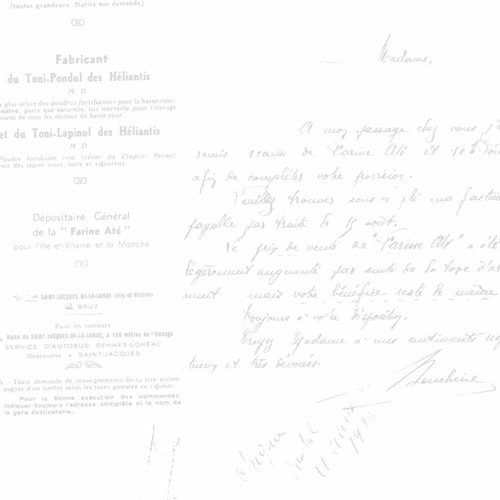 (toutes grandeurs. Notice sur demande)
Fabricant
du Toni-Pondol des Héliantis
M D
plus active des poudres fortifiantes pour la basse-cour,
parce que naturelle, fait merveille pour l'élevage
de tous les oiseaux de basse-cour.
et du Toni-Lapinol des Héliantis
M D
Poudre fortifiante vrai trésor du Clapier. Permet
des lapins sains, forts et vigoureux
Dépositaire Général
de la " Farine Até "
pour l'Ille-et-Vilaine et la Manche
SAINT-JACQUES-DE-LA-LANDE (Ille-et-Vilaine)
à BRUZ
Pour les visiteurs
Halte de SAINT-JACQUES-DE-LA-LANDE, à 150 mètres de l'élevage
SERVICE D'AUTOBUS RENNES-LOHÉAC
Descendre à SAINT-JACQUES
Toute demande de renseignements devra être accom-
pagnée d'un timbre selon les taxes postales en vigueur.
Pour la bonne exécution des commandes,
indiquer toujours l'adresse complète et le nom de
la gare destinataire.
Madame,
A mon passage chez vous j'ai
remis de Farine Até
afin de compléter votre provision.
Veuillez trouver sous ce pli ma facture
payable par traite le 15 août.
Le prix de vente de "Farine Até" a été
légèrement augmenté par suite de la taxe d'ar
ment mais votre bénéfice reste le même
Toujours à votre
Croyez Madame à mes sentiments res
tueux et très dévoués.